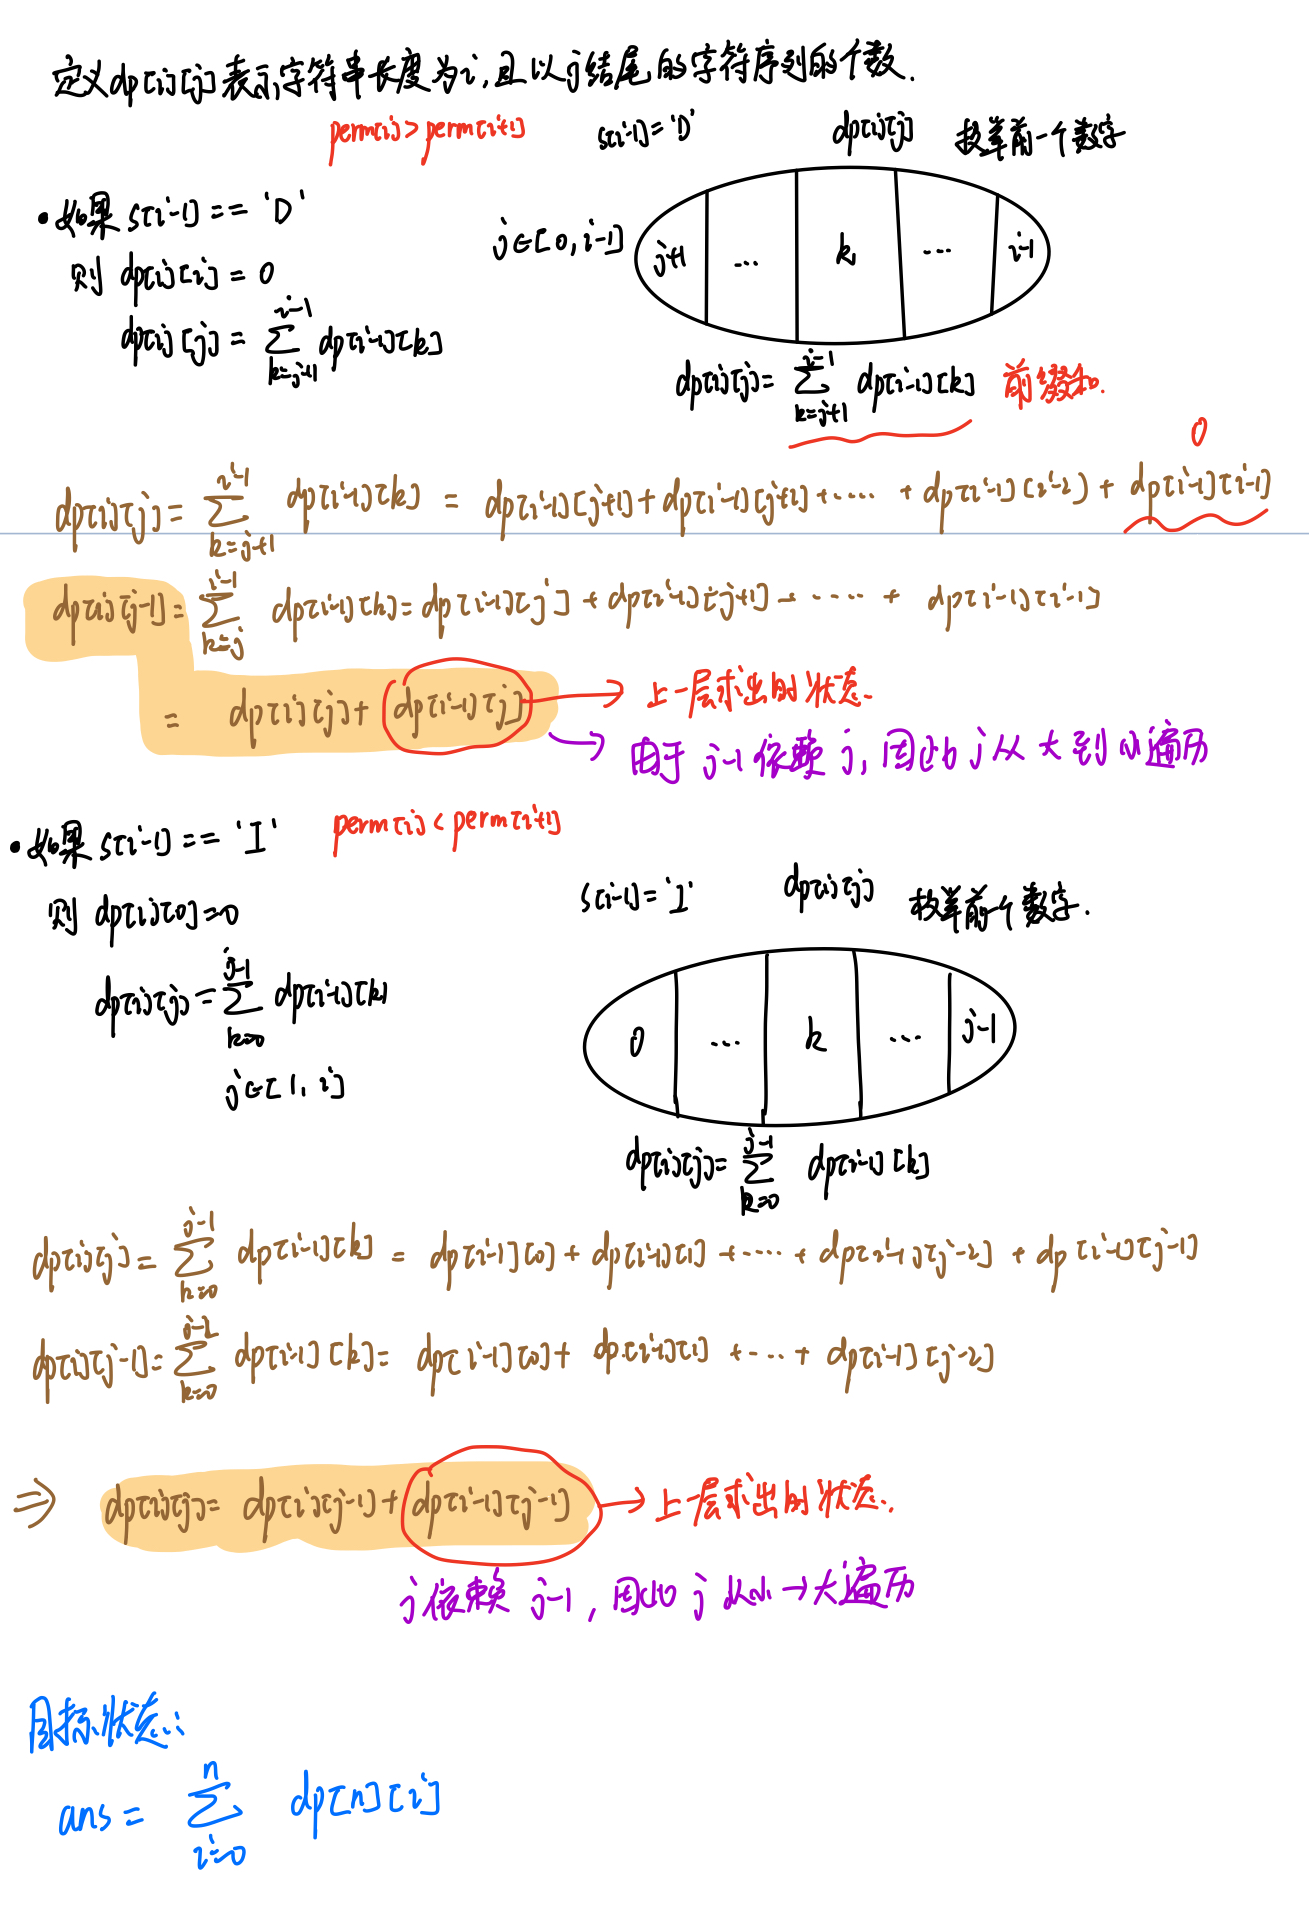 定义dp[i][j]表示字符串长度为i,且以j结尾的字符序列的个数.
perm[i]>perm[i+1]
s[i-1]='D'
dp[i][j]
枚举前一个数字
•如果 s[i-1]== 'D'
则 dp[i][i] = 0
dp[i][j] = \sum_{k=j+1}^{i-1} dp[i-1][k]
j∈[0,i-1]
j+1 ... k ... i-1
dp[i][j]= \sum_{k=j+1}^{i-1} dp[i-1][k] 前缀和.
0
dp[i][j]= \sum_{k=j+1}^{i-1} dp[i-1][k] = dp[i-1][j+1]+dp[i-1][j+2]+.... + dp[i-1][i-2] + dp[i-1][i-1]
dp[i][j-1]= \sum_{k=j}^{i-1} dp[i-1][k]=dp[i-1][j] + dp[i-1][j+1] + ..... + dp[i-1][i-1]
= dp[i][j]+ dp[i-1][j] → 上一层求出的状态.
→ 由于 j-1 依赖 j, 因此 j 从大到小遍历
•如果 s[i-1] == 'I'
perm[i]<perm[i+1]
则 dp[i][0]=0
dp[i][j] = \sum_{k=0}^{j-1} dp[i-1][k]
j∈[1, i]
s[i-1]='I'
dp[i][j]
枚举前一个数字.
0 ... k ... j-1
dp[i][j]= \sum_{k=0}^{j-1} dp[i-1][k]
dp[i][j]= \sum_{k=0}^{j-1} dp[i-1][k] = dp[i-1][0] + dp[i-1][1] +.... + dp[i-1][j-2] + dp[i-1][j-1]
dp[i][j-1]= \sum_{k=0}^{j-2} dp[i-1][k]= dp[i-1][0]+ dp[i-1][1] +...+ dp[i-1][j-2]
⇒ dp[i][j]= dp[i][j-1]+ dp[i-1][j-1] → 上一层求出的状态.
j依赖 j-1, 因此 j 从小→大遍历
目标状态:
ans = \sum_{i=0}^{n} dp[n][i]